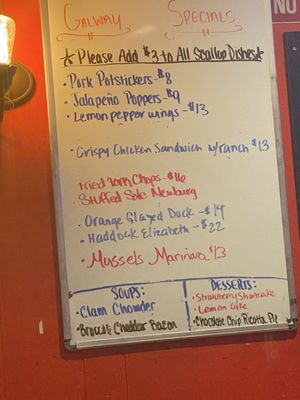 GALWAY SPECIALS
NO
★ Please Add $3 to All Scallop Dishes★
• Pork Potstickers - $8
• Jalapeño Poppers - $9
• Lemon pepper wings - $13
• Crispy Chicken Sandwich w/ranch $13
Fried Pork Chops - $16
Stuffed Sole Newburg
• Orange Glazed Duck - $19
• Haddock Elizabeth - $22
• Mussels Marinara $13
SOUPS:
• Clam Chowder
• Broccoli Cheddar Bacon
DESSERTS:
• Strawberry Shortcake
• Lemon Cake
• Chocolate Chip Ricotta Pie